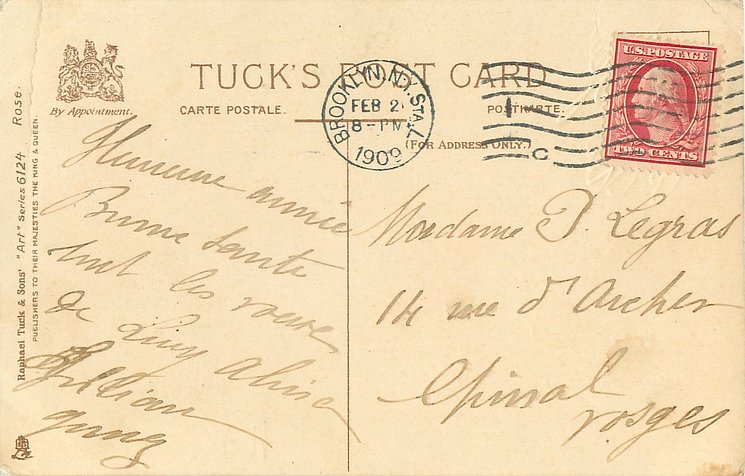 TUCK'S POST CARD
CARTE POSTALE.
POSTKARTE.
(FOR ADDRESS ONLY.)
By Appointment.
BROOKLYN, N.Y. STA.
FEB 2
8-PM
1909
U.S. POSTAGE
TWO CENTS
Raphael Tuck & Sons' "Art" Series 6124 Rose.
PUBLISHERS TO THEIR MAJESTIES THE KING & QUEEN.
Heureuse année
Bonne santé
sont les voeux
de Lucy Aline
Madame P. Legras
14 rue d'Archer
Epinal
Vosges